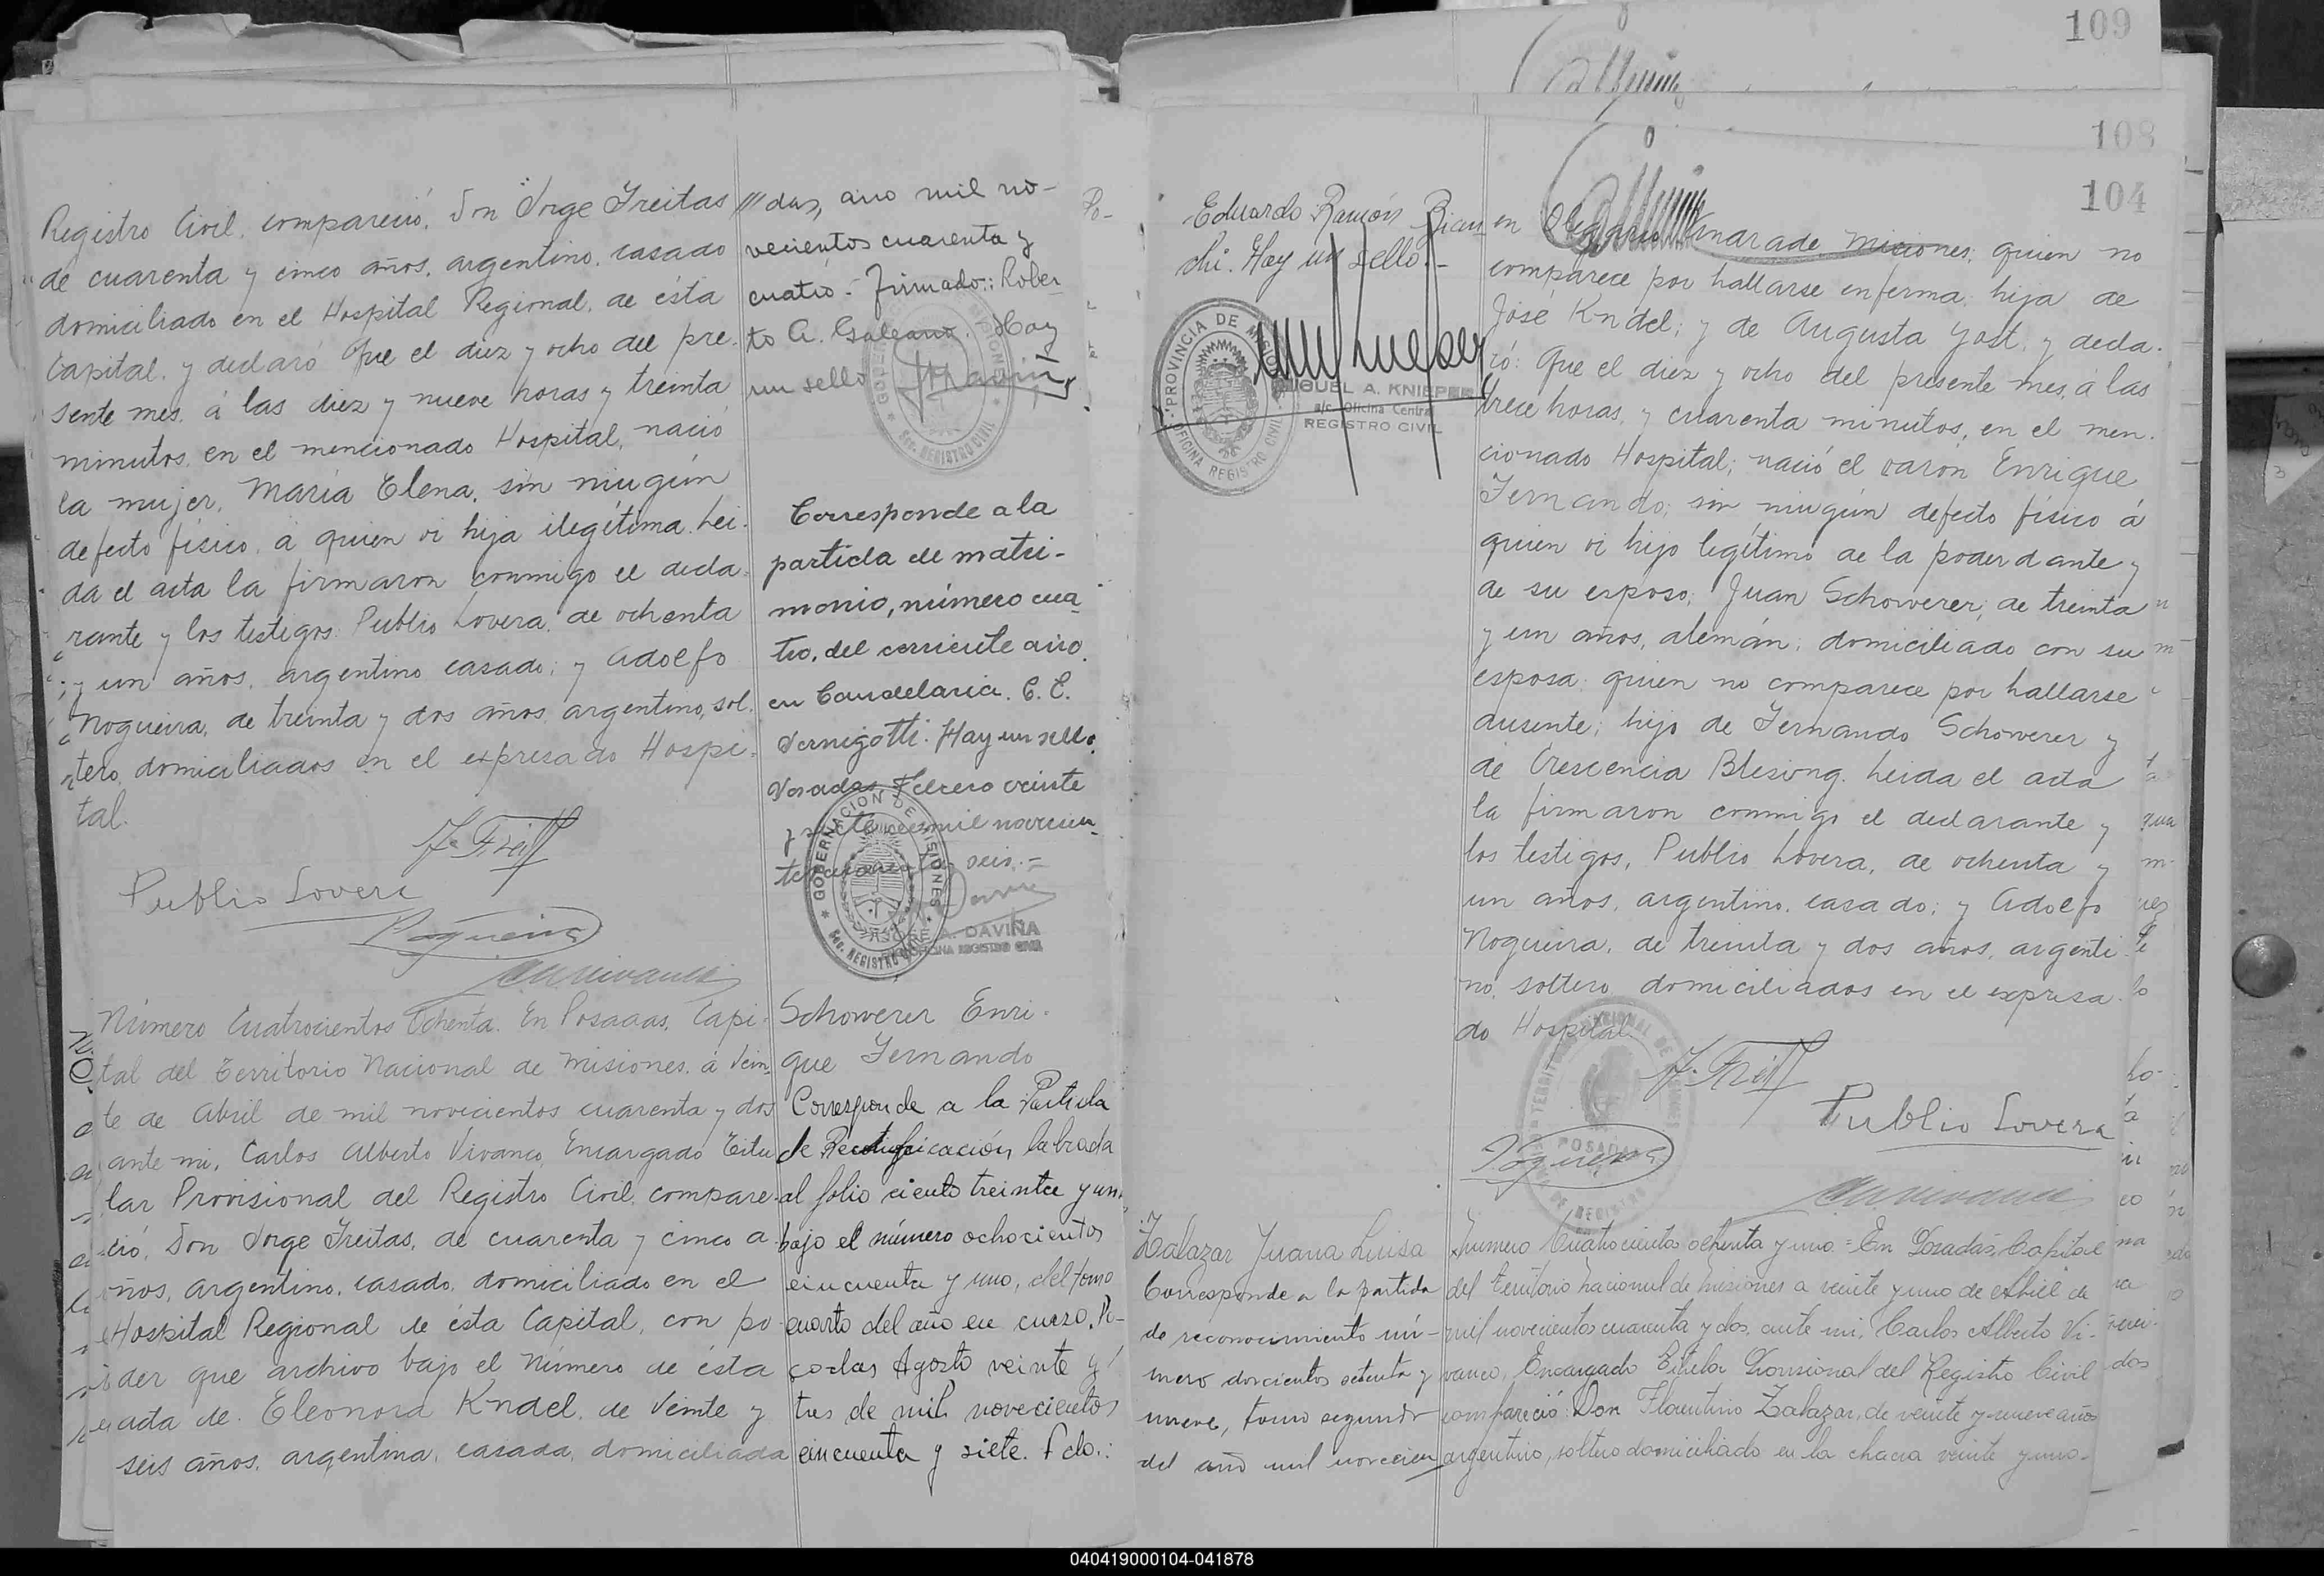 109
108
104
Registro Civil, compareció, Don Jorge Freitas
de cuarenta y cinco años, argentino, casado
domiciliado en el Hospital Regional, de ésta
Capital, y declaró Que el diez y ocho del pre-
sente mes, á las diez y nueve horas y treinta
minutos, en el mencionado Hospital, nació
la mujer, María Elena, sin ningún
defecto físico, á quien vi hija ilegítima. Lei-
da el acta la firmaron conmigo el decla-
rante y los testigos: Publio Lovera, de ochenta
y un años, argentino casado; y Adolfo
Nogueira, de treinta y dos años, argentino, sol-
tero, domiciliados en el expresado Hospi-
tal.
J. Freitas
Publio Lovera
Nogueira
///das, año mil no-
vecientos cuarenta y
cuatro.- Firmado: Rober-
to A. Galeano. Hay
un sello
Corresponde a la
partida de matri-
monio, número cua
tro, del corriente año
en Candelaria. C. C.
Vernigotti. Hay un sello.
Posadas, Febrero veinte
y siete de mil novecien-
tos cuarenta y seis.=
GOBERNACION DE MISIONES
SEC. REGISTRO CIVIL
JOSE A. DAVIÑA
OFICINA REGISTRO CIVIL
Número Cuatrocientos Ochenta. En Posadas, Capi-
tal del Territorio Nacional de Misiones, á Vein-
te de Abril de mil novecientos cuarenta y dos
ante mi, Carlos Alberto Vivanco, Encargado Titu
lar Provisional del Registro Civil, compare-
ció, Don Jorge Freitas, de cuarenta y cinco a-
ños, argentino, casado, domiciliado en el
Hospital Regional de ésta Capital, con po-
der que archivo bajo el Número de ésta
acta de Eleonora Kndel, de Veinte y
seis años, argentina, casada, domiciliada
Schowerer Enri-
que Fernando
Corresponde a la Partida
de Rectificación labrada
al folio ciento treinta y un
bajo el número ochocientos
cincuenta y uno, del tomo
cuarto del año en curso. Po-
sadas Agosto veinte y
tres de mil novecientos
cincuenta y siete. Fdo.:
Eduardo Ramón Bian
chi. Hay un sello.-
PROVINCIA DE MISIONES
OFICINA REGISTRO CIVIL
MIGUEL A. KNIEPER
a/c. Oficina Central
REGISTRO CIVIL
en Misiones; quien no
comparece por hallarse enferma, hija de
José Kndel; y de Augusta Yost, y decla-
ró: Que el diez y ocho del presente mes, á las
trece horas, y cuarenta minutos, en el men-
cionado Hospital; nació el varón Enrique
Fernando; sin ningún defecto físico á
quien vi hijo legítimo de la poderdante y
de su esposo; Juan Schowerer; de treinta
y un años, alemán; domiciliado con su
esposa; quien no comparece por hallarse
ausente; hijo de Fernando Schowerer y
de Crescencia Blesing. Leida el acta
la firmaron conmigo el declarante y
los testigos, Publio Lovera, de ochenta y
un años, argentino, casado; y Adolfo
Nogueira, de treinta y dos años, argenti-
no, soltero, domiciliados en el expresa-
do Hospital.
J. Freitas
Publio Lovera
Nogueira
POSADAS
Zalazar Juana Luisa
Corresponde a la partida
de reconocimiento nú-
mero doscientos setenta y
nueve, tomo segundo
del año mil novecien
Número Cuatrocientos ochenta y uno = En Posadas, Capital
del Territorio Nacional de Misiones a veinte y uno de Abril de
mil novecientos cuarenta y dos, ante mi, Carlos Alberto Vi-
vanco, Encargado Titular Provisional del Registro Civil
compareció Don Florentino Zalazar, de veinte y nueve años
argentino, soltero domiciliado en la chacra veinte y uno-
040419000104-041878